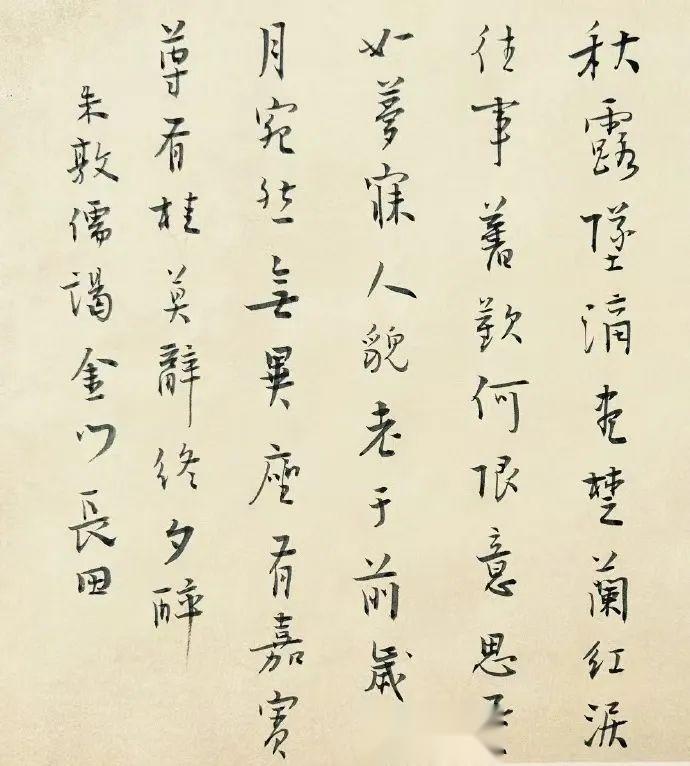 秋露墜滴盡楚蘭紅淚
往事舊歡何限意思
如夢寐人貌老于前歲
月宛然無異座有嘉賓
尊有桂莫辭終夕醉
朱敦儒謁金門長田